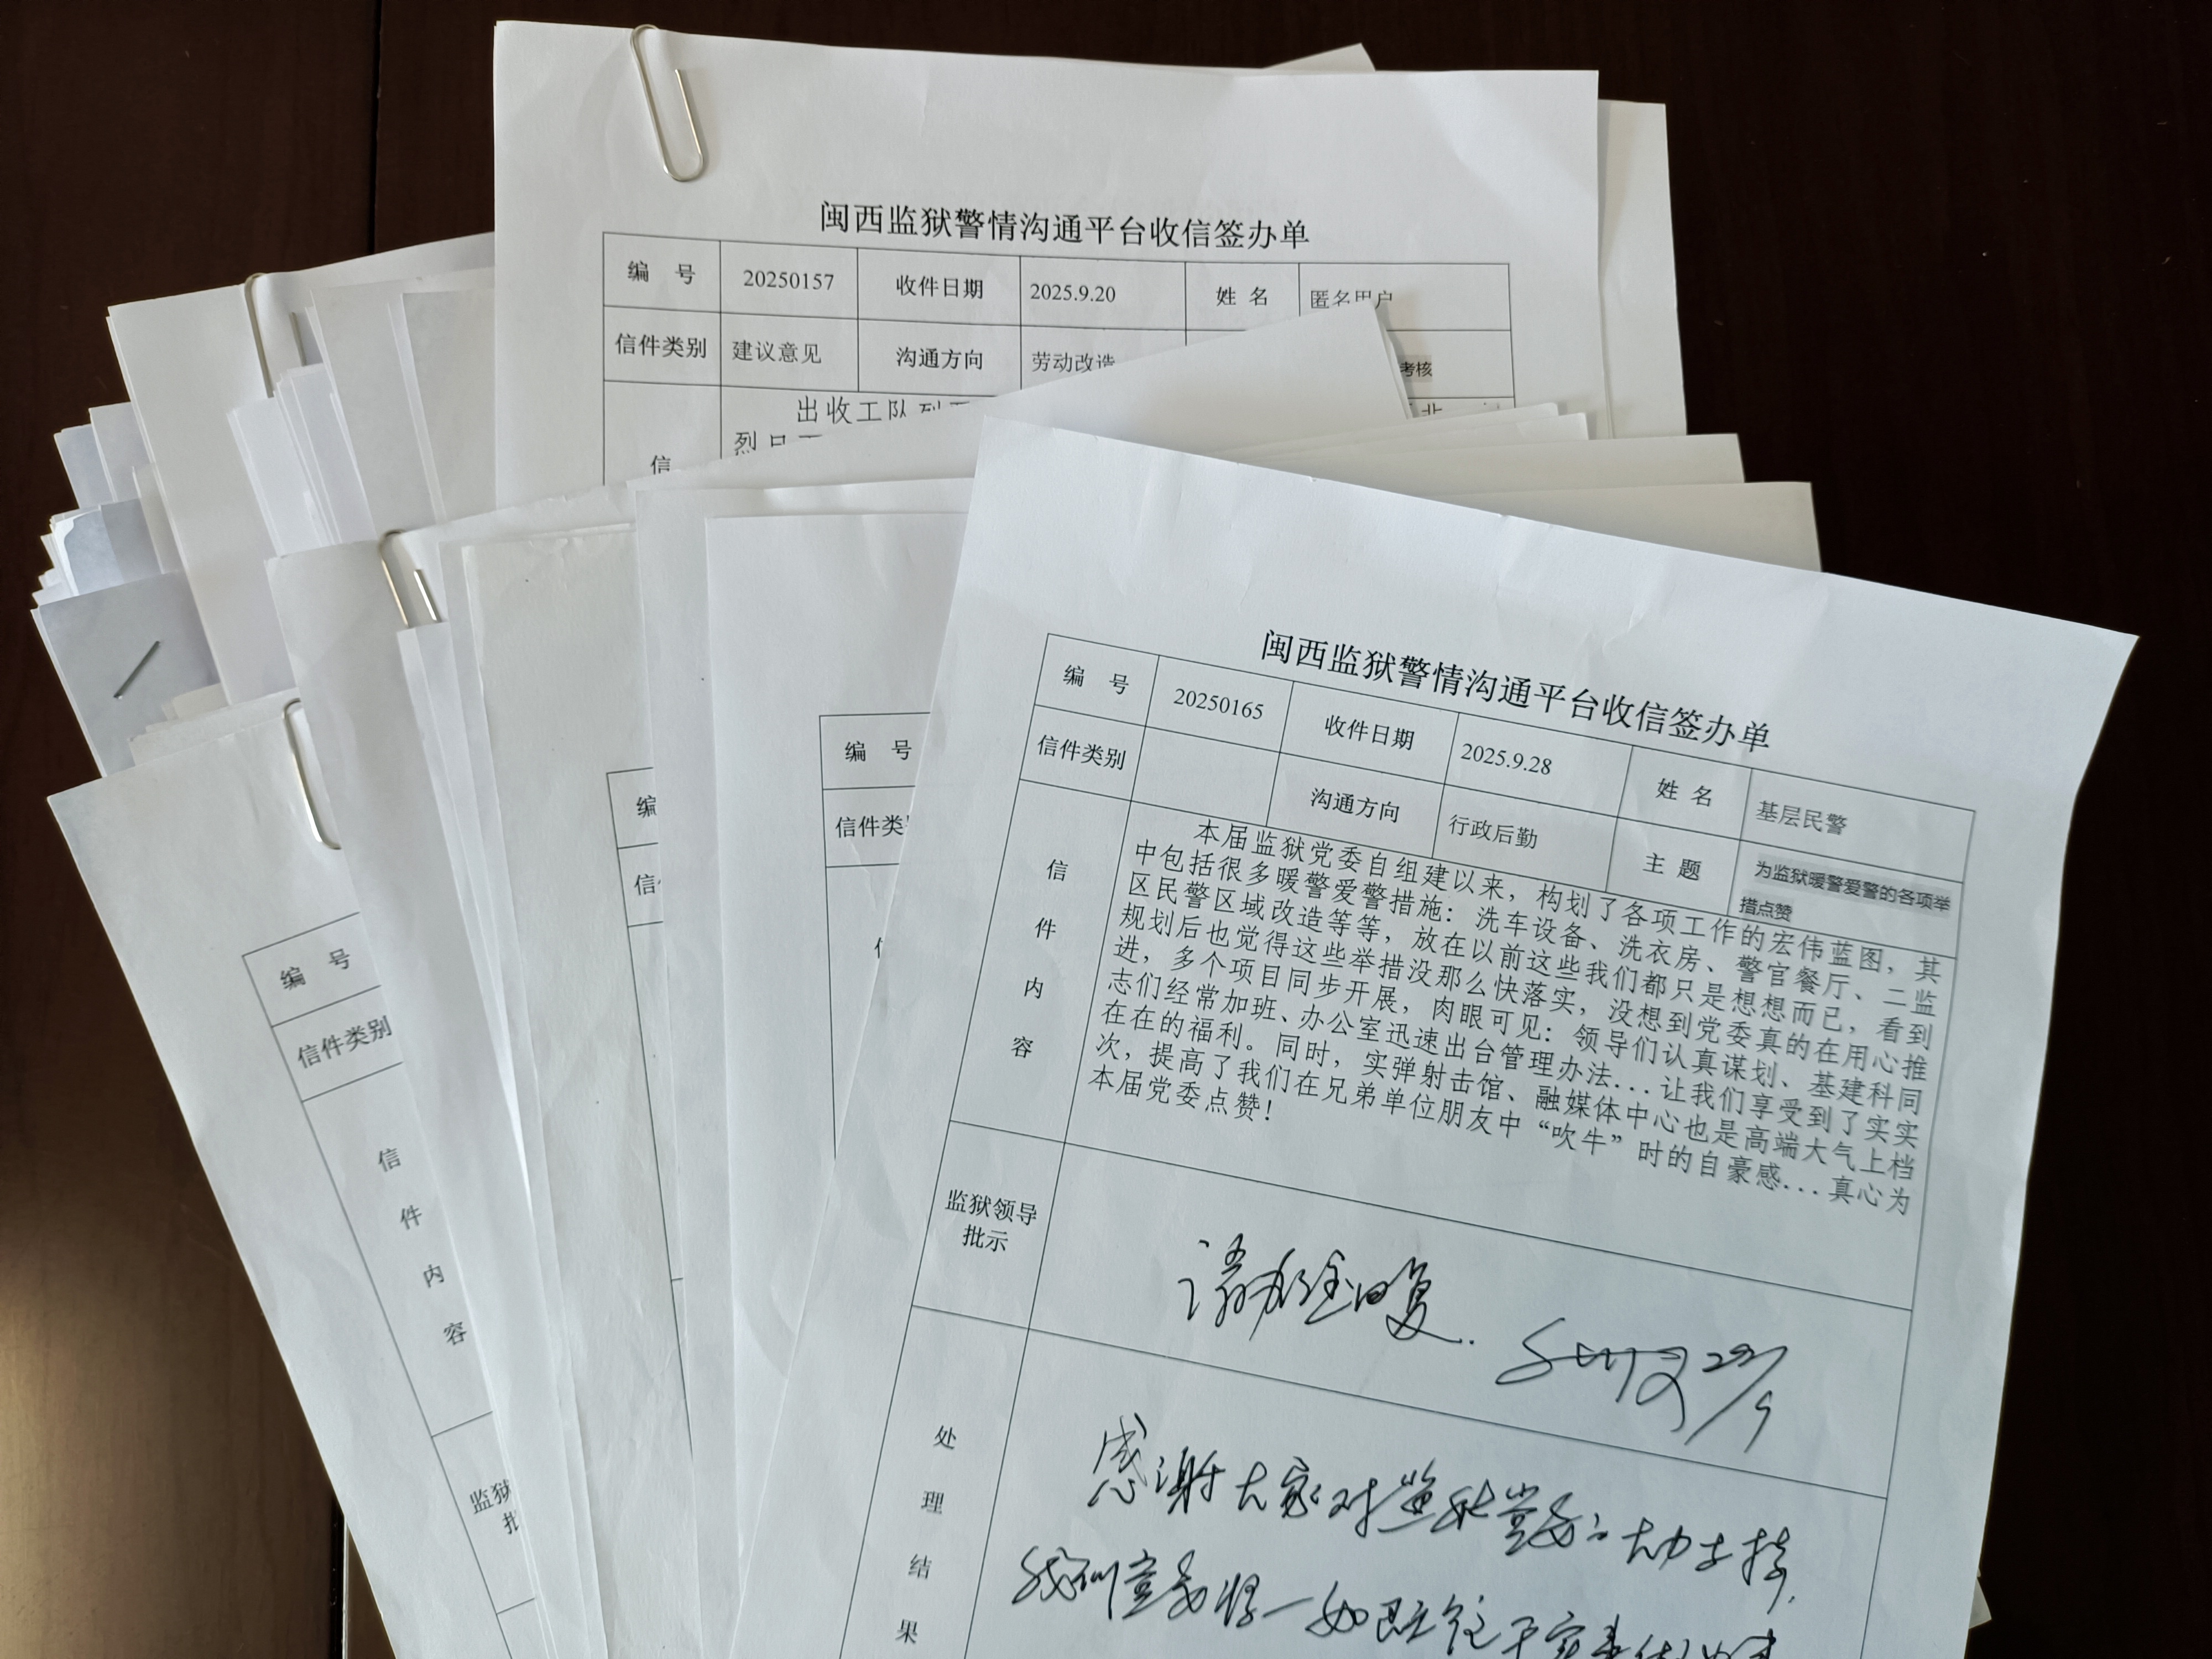 闽西监狱警情沟通平台收信签办单
编 号 20250157 收件日期 2025.9.20 姓 名 匿名用户
信件类别 建议意见 沟通方向 劳动改造 考核
出收工队列
烈日
信
闽西监狱警情沟通平台收信签办单
编 号 20250165 收件日期 2025.9.28 姓 名 基层民警
信件类别 沟通方向 行政后勤 主 题 为监狱暖警爱警的各项举
措点赞
信件内容
本届监狱党委自组建以来，构划了各项工作的宏伟蓝图，其
中包括很多暖警爱警措施：洗车设备、洗衣房、警官餐厅、二监
区民警区域改造等等，放在以前这些我们都只是想想而已，看到
规划后也觉得这些举措没那么快落实，没想到党委真的在用心推
进，多个项目同步开展，肉眼可见：领导们认真谋划、基建科同
志们经常加班、办公室迅速出台管理办法...让我们享受到了实实
在在的福利。同时，实弹射击馆、融媒体中心也是高端大气上档
次，提高了我们在兄弟单位朋友中“吹牛”时的自豪感...真心为
本届党委点赞！
监狱领导
批示
请办理回复.
29/9
处理结果
感谢大家对监狱党委的大力支持.
我们党委将一如既往
编 号
信件类
编
信
编 号
信件类别
信件内容
监狱
批